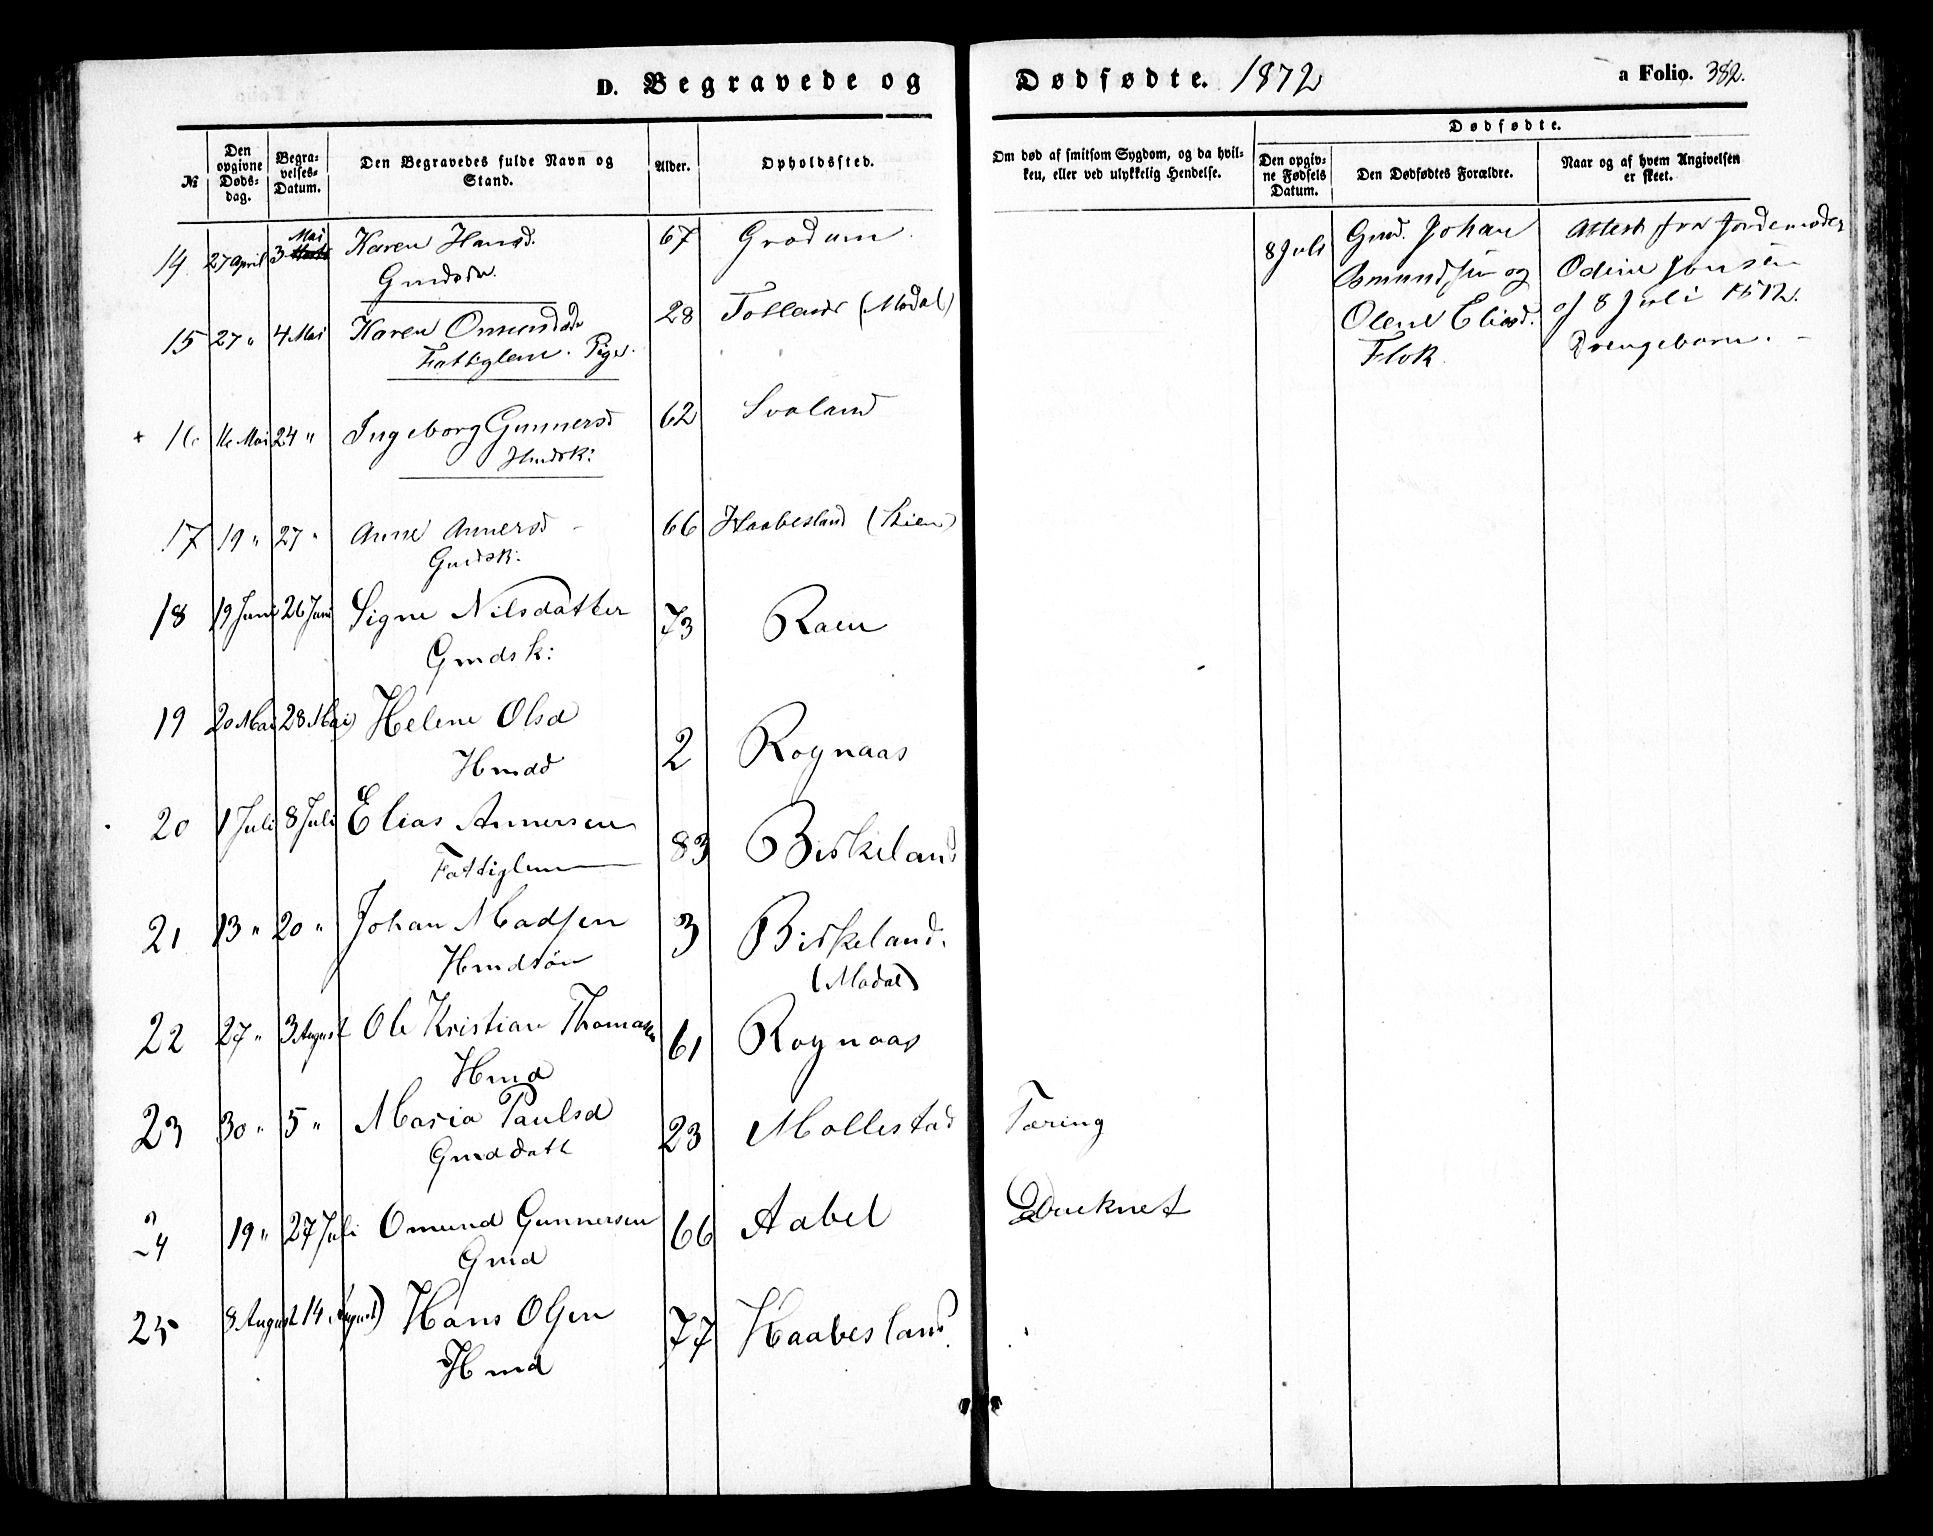 D. Begravede og Dødfødte. 1872
a Folio. 382.
№ | Den opgivne Døds-dag. | Begra-velses-Datum. | Den Begravedes fulde Navn og Stand. | Alder. | Opholdssted. | Om død af smitsom Sygdom, og da hvil-ken, eller ved ulykkelig Hendelse.
Dødfødte.
Den opgiv-ne Fødsels Datum. | Den Dødfødtes Forældre. | Naar og af hvem Angivelsen er skeet.
14 27 April 3 Mai Karen Hansd. 67 Grødum.
15 27 " 4 Mai Karen 28 (Mødal)
Fattiglem. Pige.
16 16 Mai 24 " Ingeborg Gunnersd 62 Svaland
Hmdsk:
17 19 " 27 " Anne Annersd 66 Haabesland (Skien)
Gmdsk:
18 19 Juni 26 Juni Signe Nilsdatter 73 Raen
Gmdsk:
19 20 Mai 28 Mai Helene Olsd 2 Rognaas
Hmdd
20 1 Juli 8 Juli Elias Annersen 83 Birkeland
Fattiglem
21 13 " 20 " Johan Madsen 3 Birkeland.
Hmdsøn (Mødal)
22 27 " 3 August Ole Kristian Thomassen 61 Rognaas
Hmd
23 30 " 5 " Maria Paulsd 23 Mollestad Tæring
Gmddatt
24 19 " 27 Juli Omund Gunnersen 66 Aabel Druknet
Gmd
25 8 August 14 August Hans Olsen 77 Haabesland.
Hmd
8 Juli Gmd. Johan Attest fra Jordemoder
Osmundsen og Odine Jensen
Olene Eliasd. af 8 Juli 1872.
Flok Drengebarn.